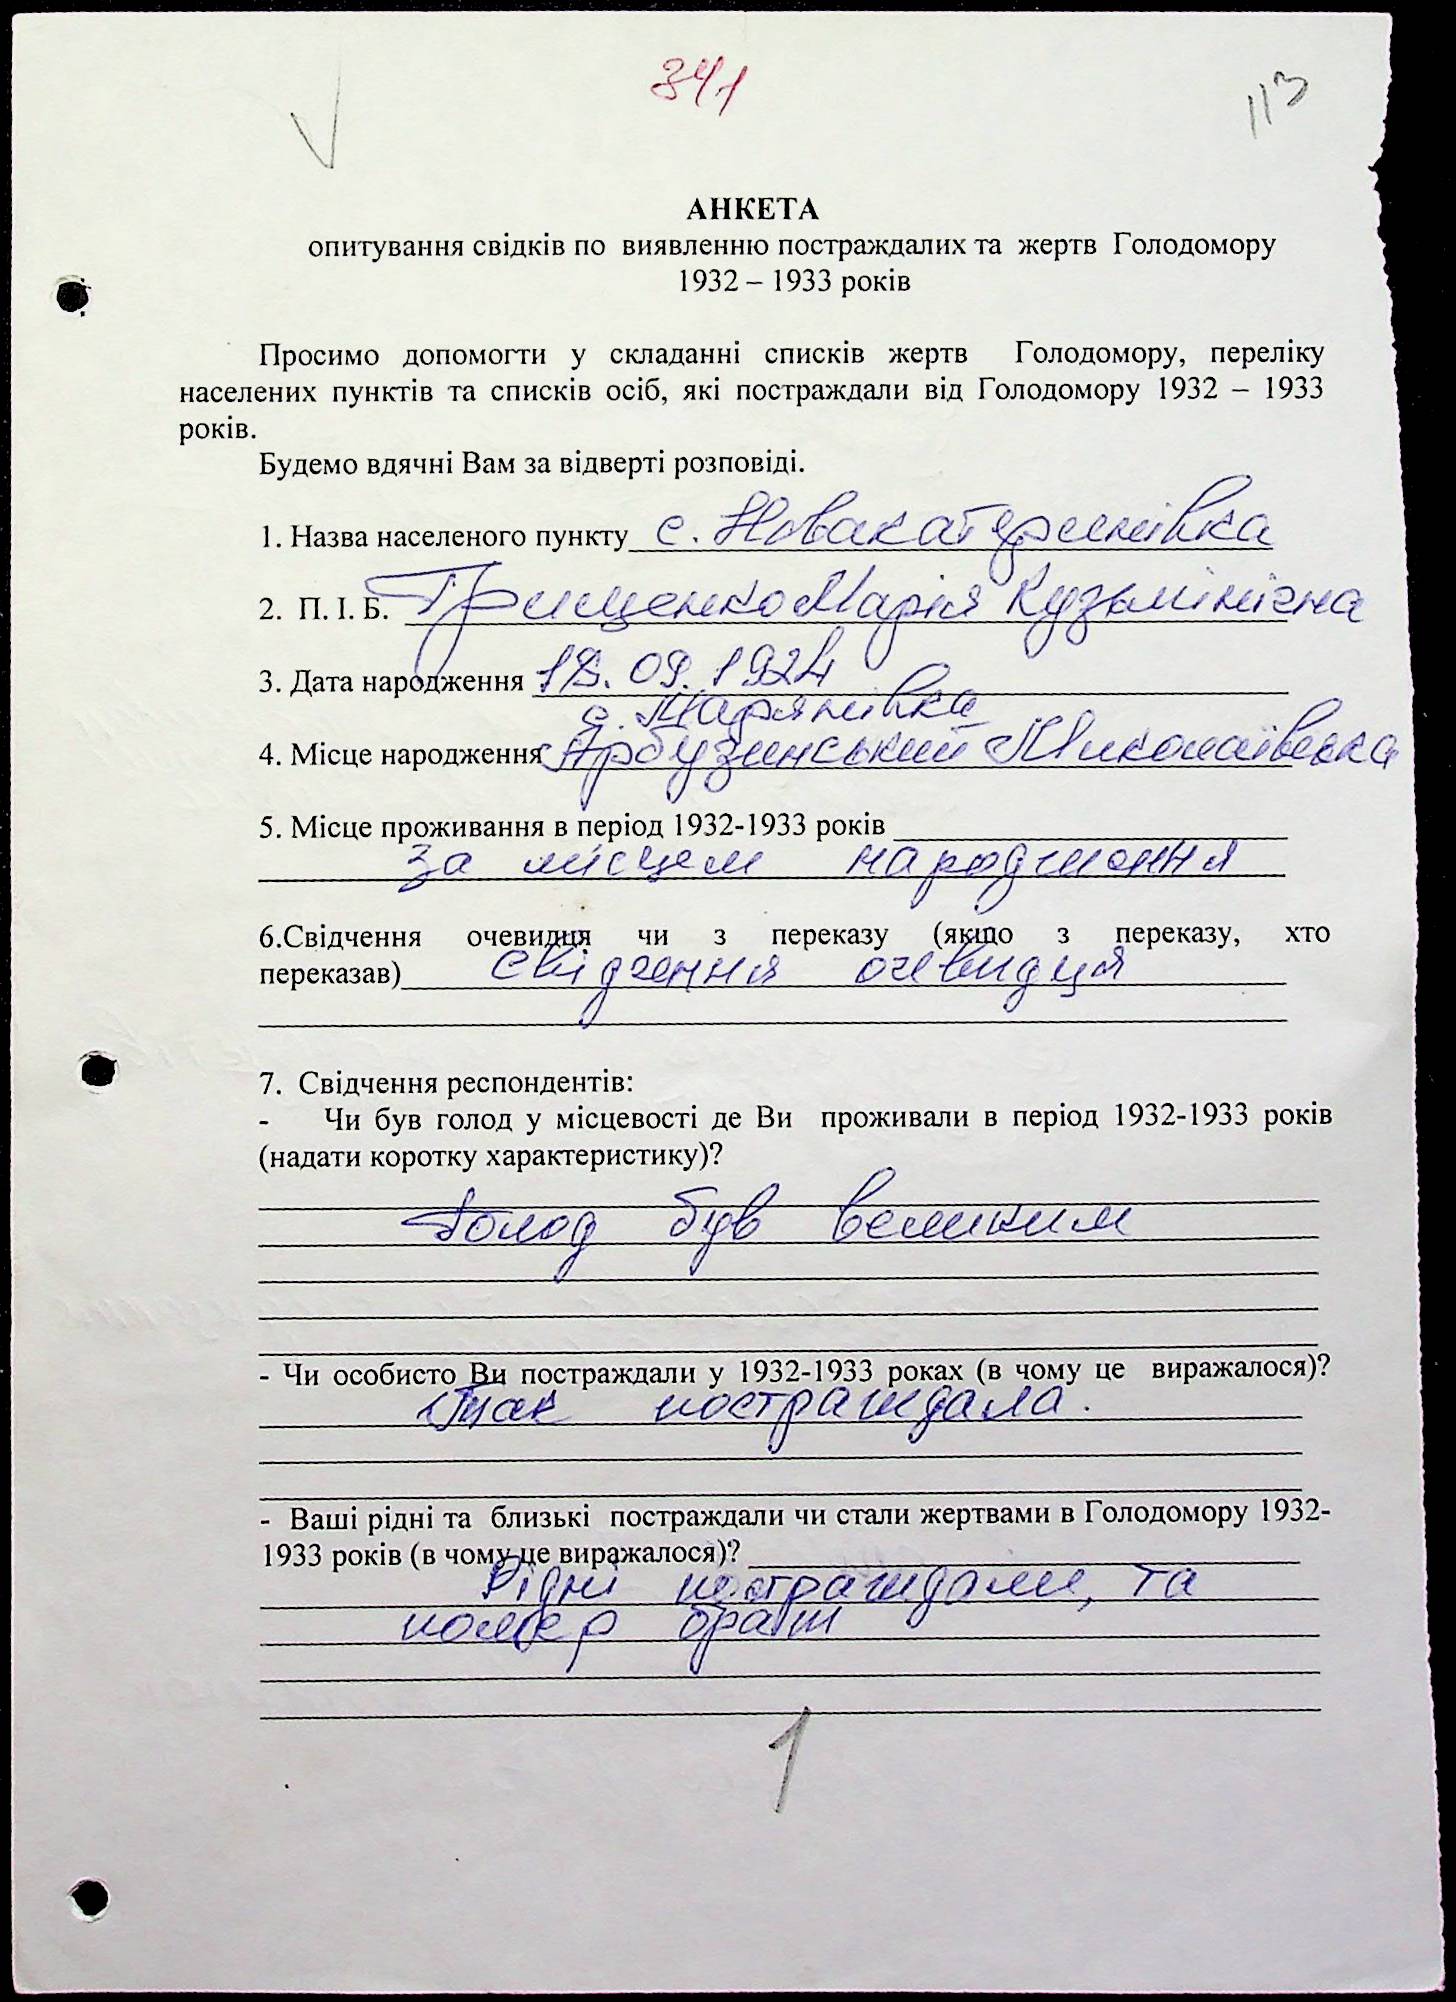 341
113
АНКЕТА
опитування свідків по виявленню постраждалих та жертв Голодомору
1932 – 1933 років
Просимо допомогти у складанні списків жертв Голодомору, переліку
населених пунктів та списків осіб, які постраждали від Голодомору 1932 – 1933
років.
Будемо вдячні Вам за відверті розповіді.
1. Назва населеного пункту с. Новакатеринівка
2. П. І. Б. Грищенко Марія Кузьмінічна
3. Дата народження 18.09.1924
с. Мар'янівка
4. Місце народження Арбузинський Миколаївська
5. Місце проживання в період 1932-1933 років
за місцем народження
6.Свідчення очевидця чи з переказу (якщо з переказу, хто
переказав) свідчення очевидця
7. Свідчення респондентів:
- Чи був голод у місцевості де Ви проживали в період 1932-1933 років
(надати коротку характеристику)?
Голод був великим
- Чи особисто Ви постраждали у 1932-1933 роках (в чому це виражалося)?
Так постраждала.
- Ваші рідні та близькі постраждали чи стали жертвами в Голодомору 1932-
1933 років (в чому це виражалося)?
Рідні постраждали, та
помер брат
1